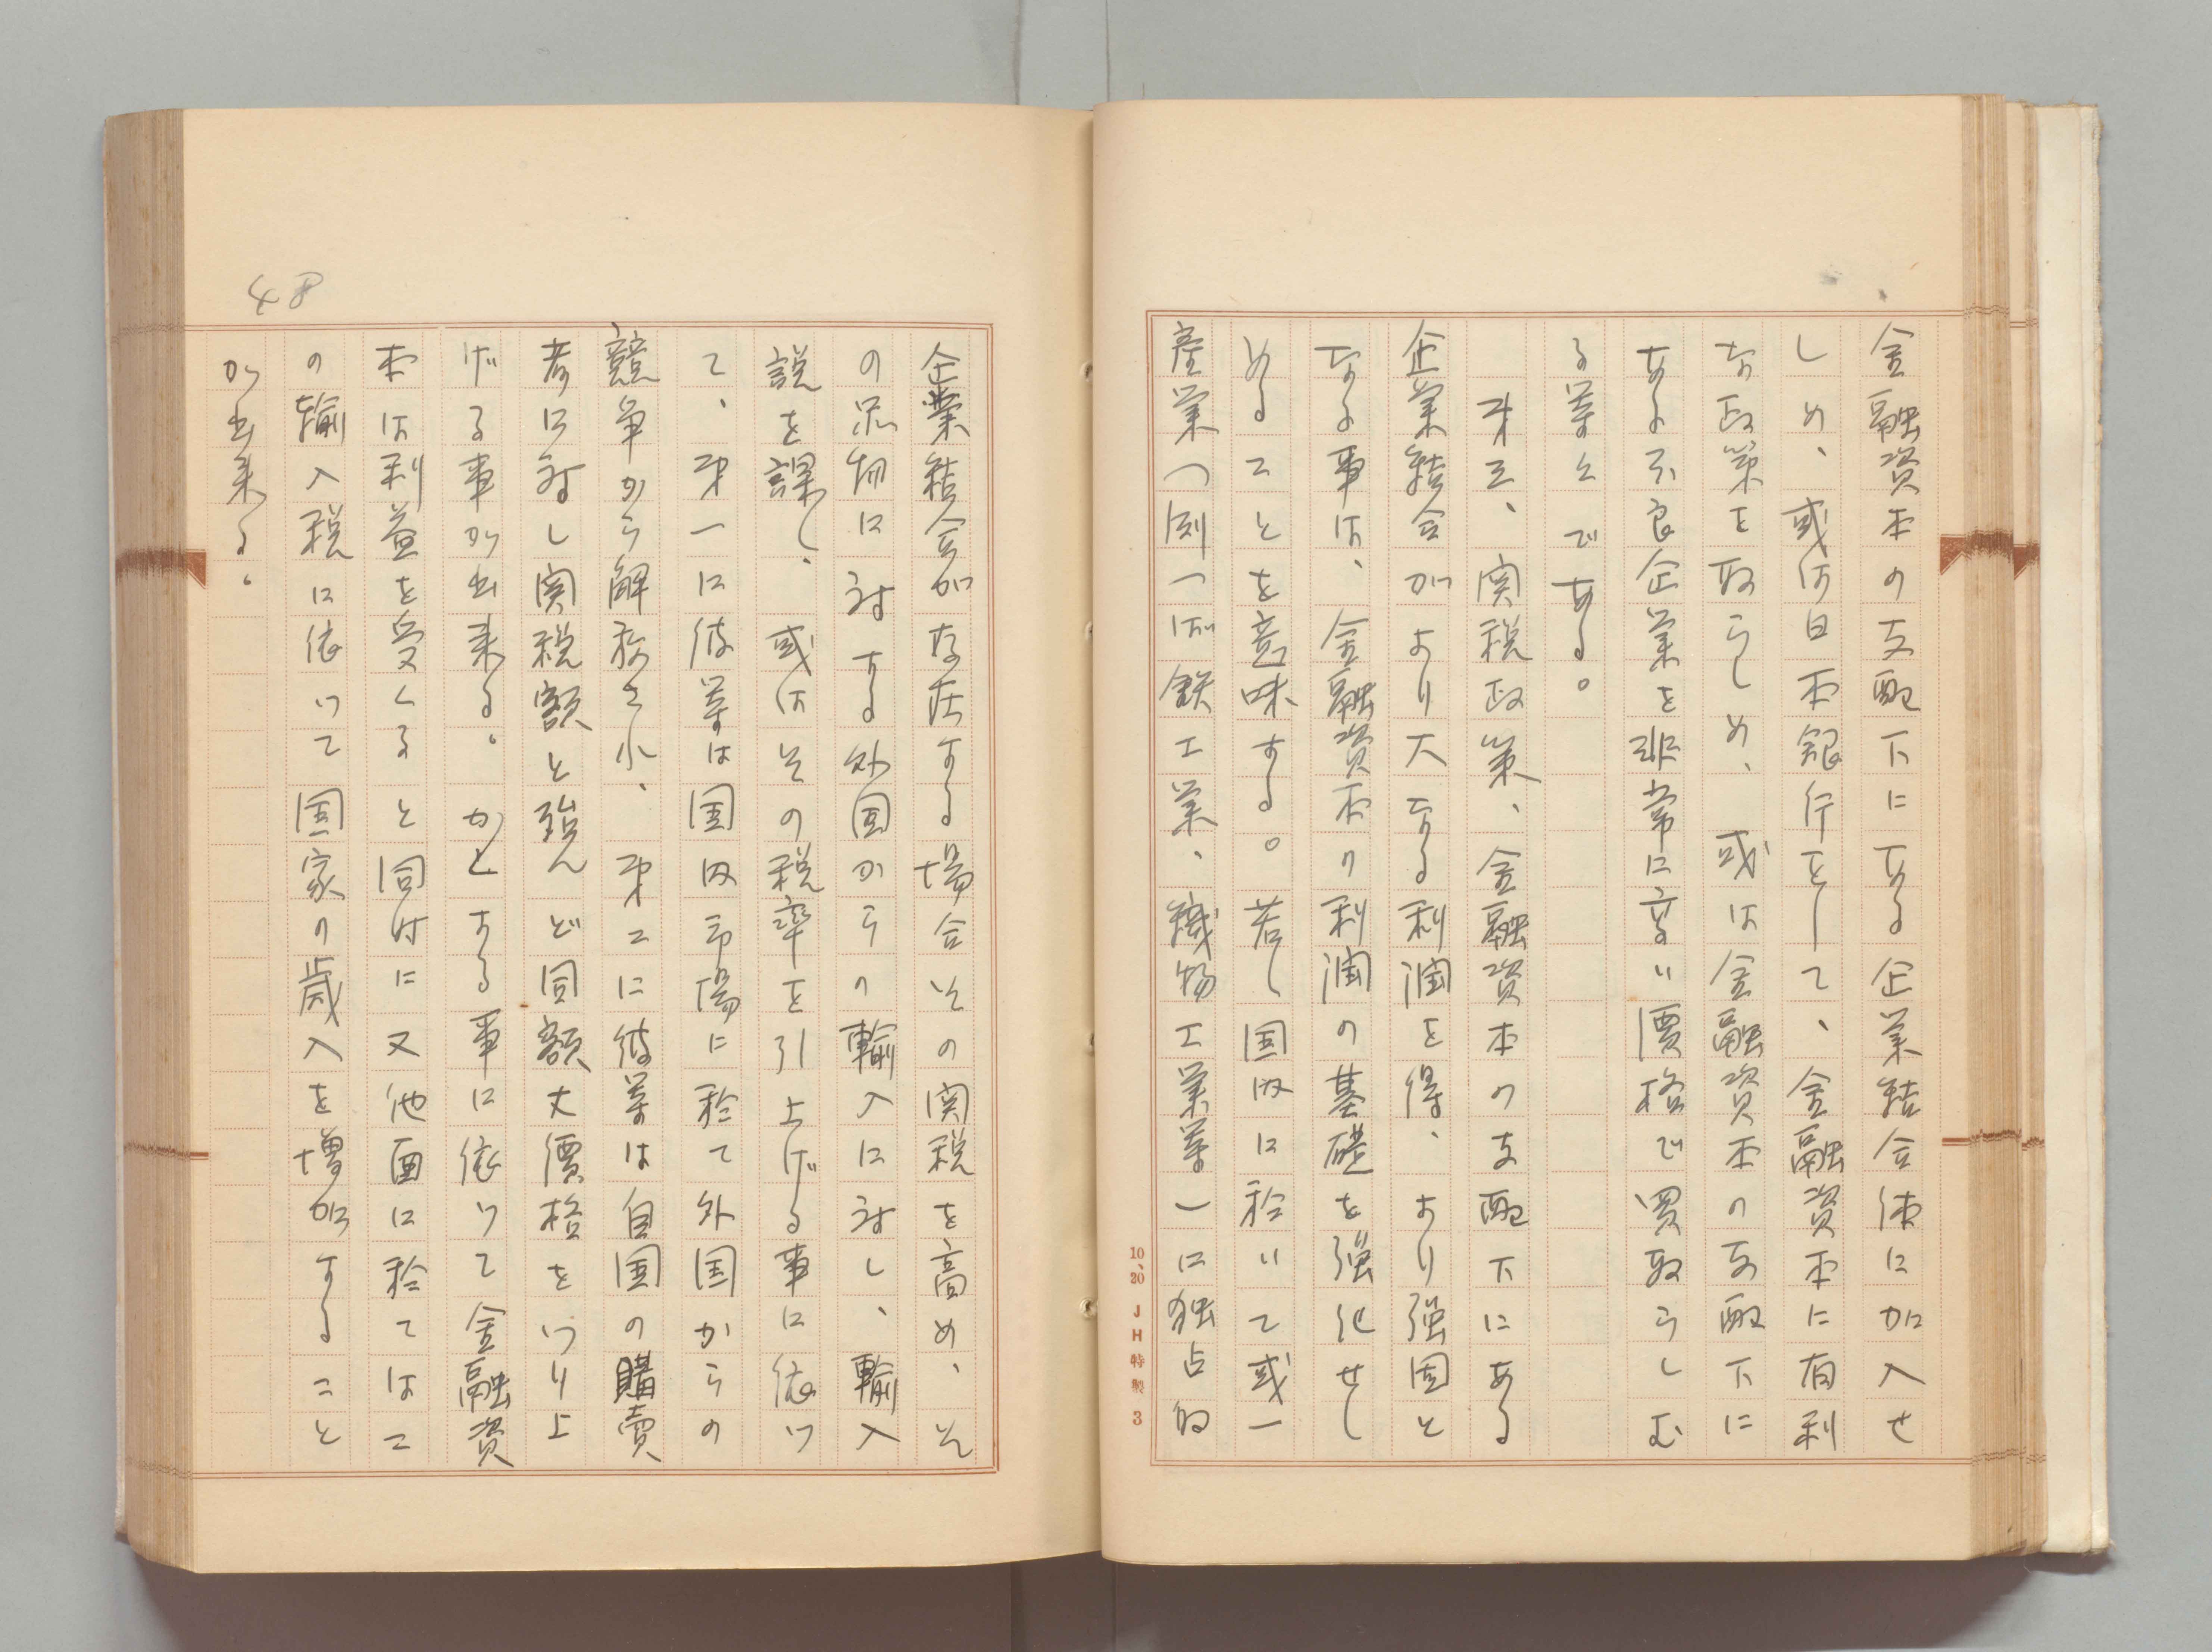 金融資本の支配下にある企業結合体に加入せ
しめ、或は日本銀行をして、金融資本に有利
な政策を取らしめ、或は金融資本の支配下に
ある不良企業を非常に高い價格で買取らしむ
る等々である。
　オ三、関税政策、金融資本の支配下にある
企業結合がより大なる利潤を得、より強固と
なる事は、金融資本の利潤の基礎を強化せし
めることを意味する。若し国内に於いて或一
産業（例へば鉄工業、織物工業等）に独占的
10、20 JH特製 3
48
企業結合が存在する場合その関税を高め、そ
の品物に対する外国からの輸入に対し、輸入
説を課し、或はその税率を引上げる事に依つ
て、オ一に彼等は国内市場に於て外国からの
競争から解放され、オ二に彼等は自国の購買
者に対し関税額と殆んど同額丈價格をつり上
げる事が出来る。かとする事に依つて金融資
本は利益を受くると同時に又他面に於てはこ
の輸入税に依つて国家の歳入を増加すること
が出来る。